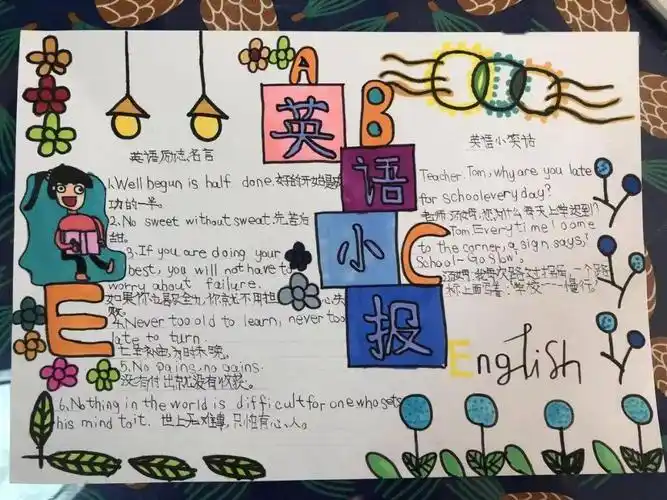 A
B
C
E
英
语
小
报
英语励志名言
1.Well begun is half done.好的开始是成
功的一半。
2. No sweet without sweat.先苦后
甜。
3. If you are doing your
best, you will not have to
worry about failure.
如果你已竭尽全力,你就不用担心失
败。
4. Never too old to learn, never too
late to turn.
亡羊补牢,为时未晚。
5. No pains, no gains.
没有付出就没有收获。
6. Nothing in the world is difficult for one who sets
his mind to it. 世上无难事,只怕有心人。
英语小笑话
Teacher. Tom, why are you late
for school every day?
老师:汤姆,您为什么每天上学迟到?
Tom Every time I come
to the corner, a sign says,
School-Go Slow".
汤姆:我每次路过拐角,一个路
标上面写着:学校——慢行?
English